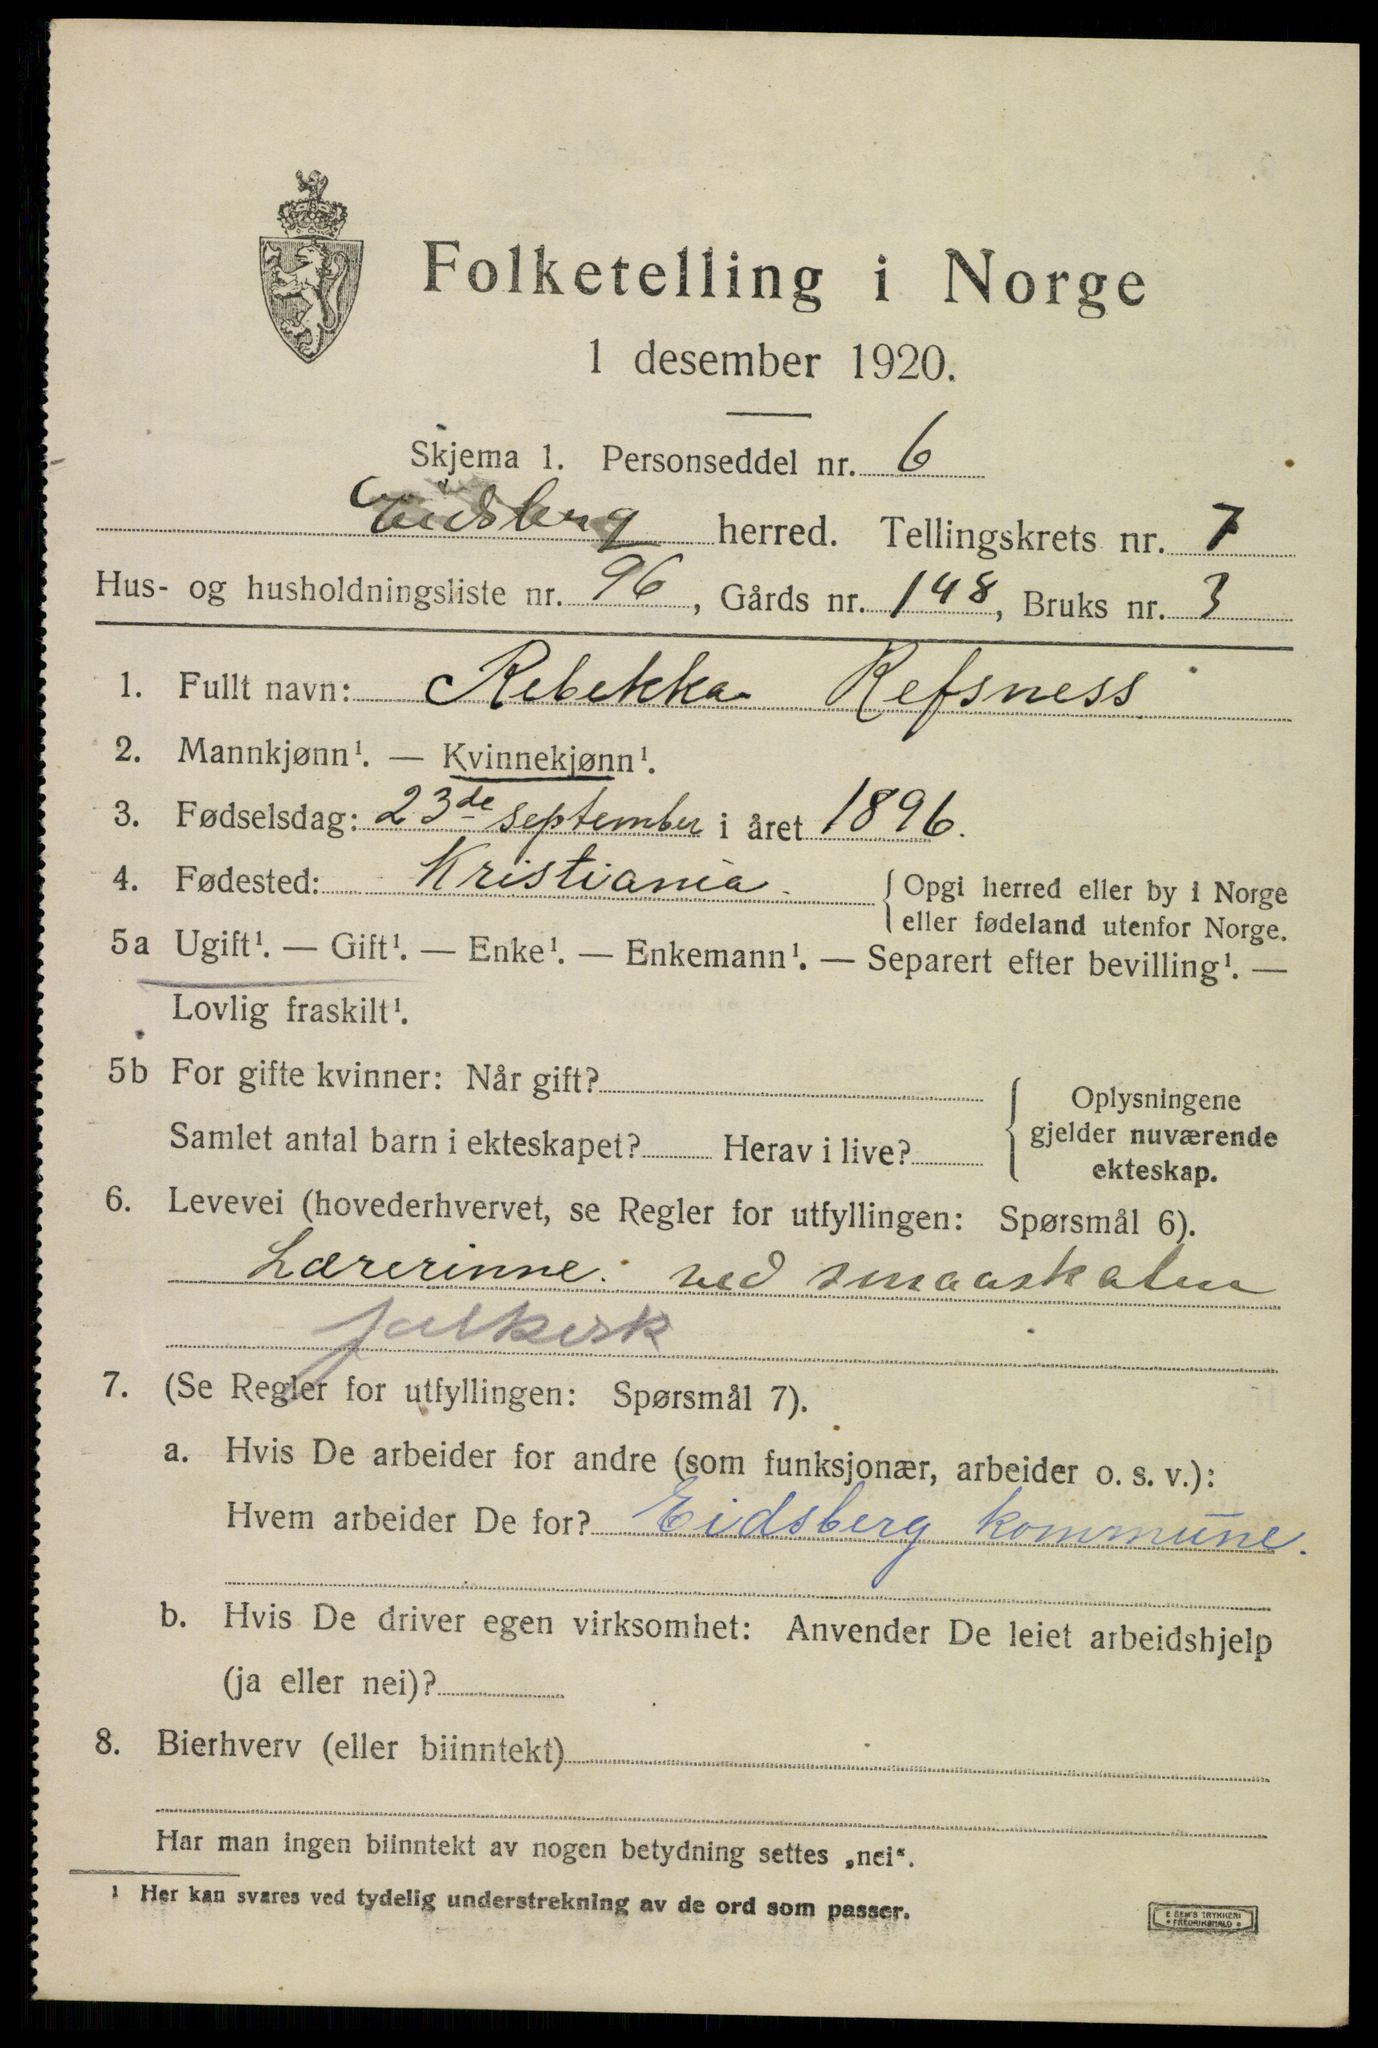 Folketelling i Norge
1 desember 1920.
Skjema 1. Personseddel nr. 6
Eidsberg herred. Tellingskrets nr. 7
Hus- og husholdningsliste nr. 96, Gårds nr. 148, Bruks nr. 3
1. Fullt navn: Rebekka Refsness
2. Mannkjønn¹. — Kvinnekjønn¹.
3. Fødselsdag: 23de september i året 1896.
4. Fødested: Kristiania. { Opgi herred eller by i Norge
eller fødeland utenfor Norge.
5a Ugift¹. — Gift¹. — Enke¹. — Enkemann¹. — Separert efter bevilling¹. —
Lovlig fraskilt¹.
5b For gifte kvinner: Når gift?
Samlet antal barn i ekteskapet? Herav i live?
Oplysningene
gjelder nuværende
ekteskap.
6. Levevei (hovederhvervet, se Regler for utfyllingen: Spørsmål 6).
Lærerinne. ved smaaskolen
folkesk
7. (Se Regler for utfyllingen: Spørsmål 7).
a. Hvis De arbeider for andre (som funksjonær, arbeider o. s. v.):
Hvem arbeider De for? Eidsberg kommune.
b. Hvis De driver egen virksomhet: Anvender De leiet arbeidshjelp
(ja eller nei)?
8. Bierhverv (eller biinntekt)
Har man ingen biinntekt av nogen betydning settes „nei“.
¹ Her kan svares ved tydelig understrekning av de ord som passer.
E SEM'S TRYKKERI
• FREDRIKSHALD •